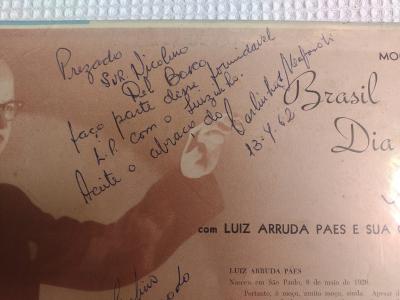 Prezado
Snr. Nicolino
Del Bosco
faço parte desse formidavel
L.P. com o Luizinho.
Aceite o abraço do Carlinhos
13.4.62
Brasil
Dia
com LUIZ ARRUDA PAES E SUA
LUIZ ARRUDA PAES
Nasceu em São Paulo, 9 de maio de 1926.
Portanto, é moço, muito moço, ainda. Apesar